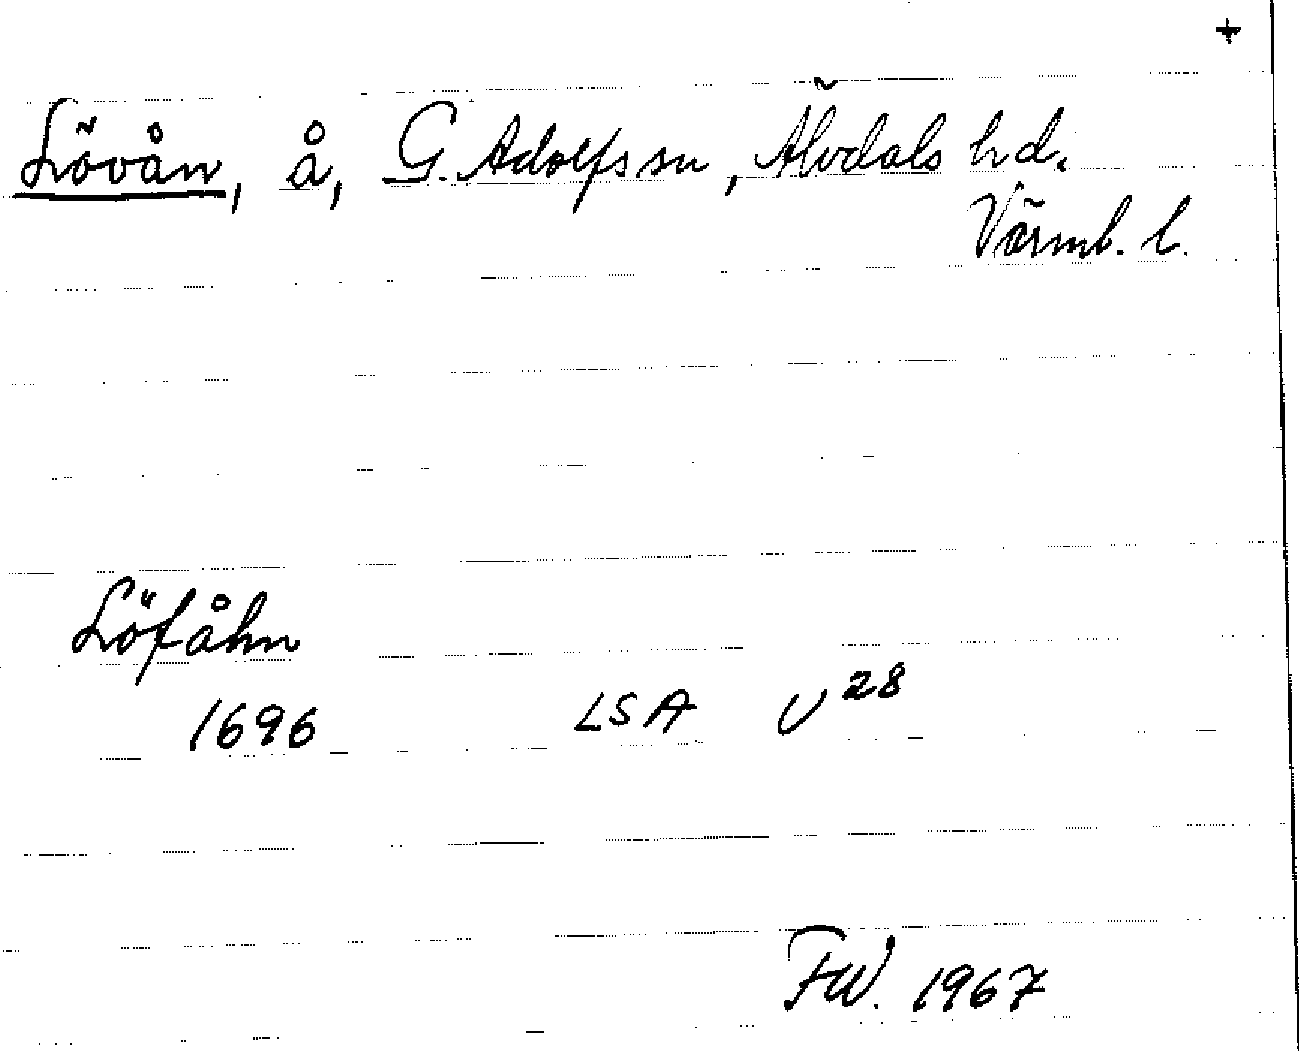 +
Lövån, å, G. Adolfs sn, Älvdals hd.
Värml. l.
Löfåhn
1696 LSA U28
FW. 1967